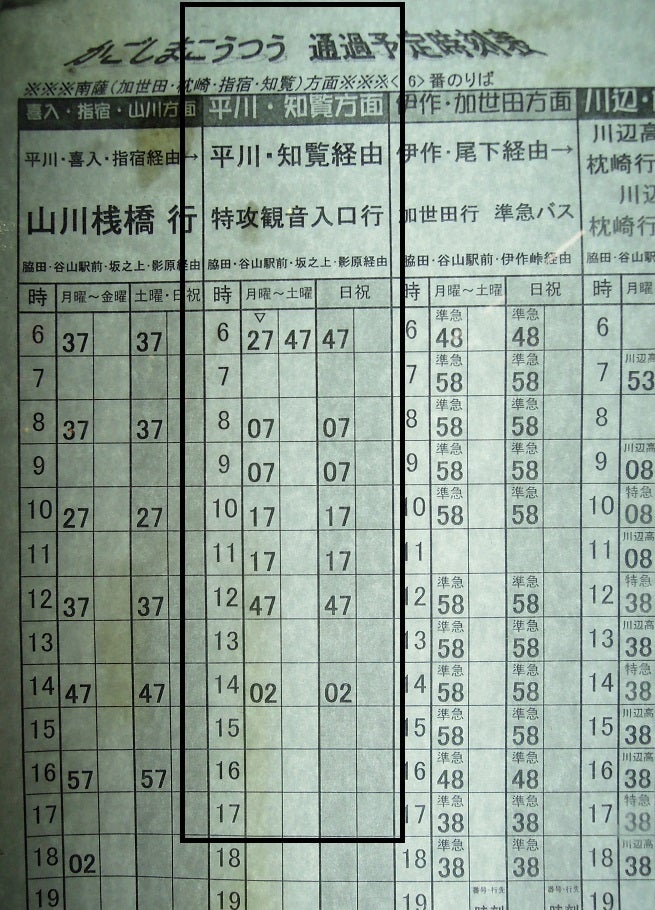 かごしまこうつう 通過予定時刻表
※※※南薩(加世田・枕崎・指宿・知覧)方面※※※<6>番のりば
喜入・指宿・山川方面 平川・知覧方面 伊作・加世田方面 川辺・
平川・喜入・指宿経由→ 平川・知覧経由 伊作・尾下経由→ 川辺高
枕崎行
山川桟橋 行 特攻観音入口行 加世田行 準急バス 川辺
枕崎行
脇田・谷山駅前・坂之上・影原経由 脇田・谷山駅前・坂之上・影原経由 脇田・谷山駅前・伊作峠経由 脇田・谷山駅
時 月曜～金曜 土曜・日祝 時 月曜～土曜 日祝 時 月曜～土曜 日祝 時 月曜
▽ 準急 準急
6 37 37 6 27 47 47 6 48 48 6
準急 準急 川辺高
7 7 7 58 58 7 53
準急 準急
8 37 37 8 07 07 8 58 58 8
準急 準急 川辺高
9 9 07 07 9 58 58 9 08
準急 準急 特急
10 27 27 10 17 17 10 58 58 10 08
川辺高
11 11 17 17 11 11 08
準急 準急 特急
12 37 37 12 47 47 12 58 58 12 38
準急 準急 川辺高
13 13 13 58 58 13 38
準急 準急 特急
14 47 47 14 02 02 14 58 58 14 38
準急 準急 川辺高
15 15 15 58 58 15 38
準急 準急 川辺高
16 57 57 16 16 48 48 16 38
準急 準急 特急
17 17 17 38 38 17 38
準急 準急 川辺高
18 02 18 18 38 38 18 38
番号・行先 番号・行先
19 19 19 時刻 時刻 19